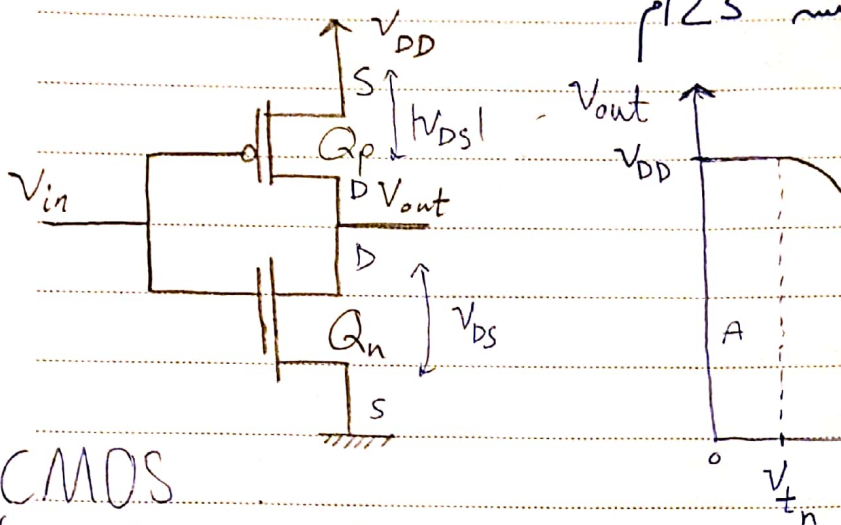 V_DD
S
|V_DS|
Q_p
D
V_in
V_out
D
Q_n
V_DS
S
CMOS
V_out
V_DD
A
0
V_tn